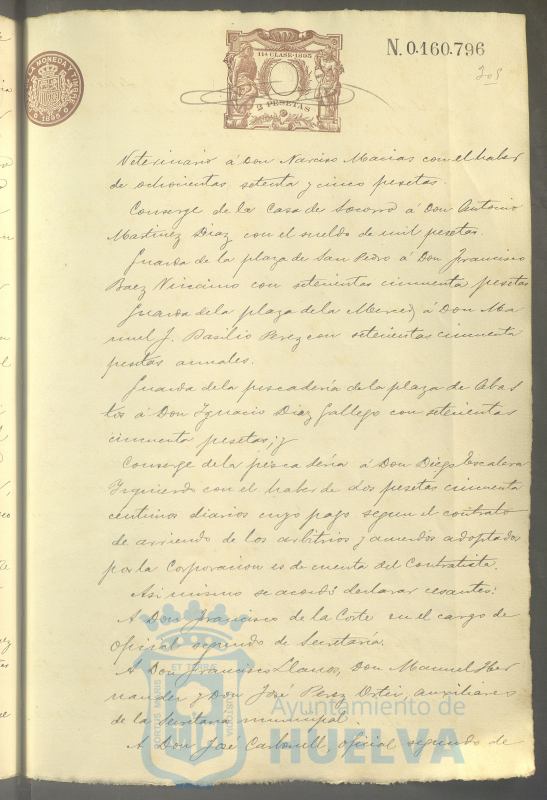 11ª CLASE-1895
2 PESETAS
N. 0.160.796
MONEDA Y TIMBRE
1895
Veterinario á Don Narciso Macias con el haber
de ochocientas setenta y cinco pesetas.
Conserge de la Casa de Socorro á Don Antonio
Martinez Diaz con el sueldo de mil pesetas.
Guarda de la plaza de San Pedro á Don Francisco
Baez Vizcaino con setecientas cincuenta pesetas
Guarda de la plaza de la Merced á Don Ma
nuel J. Basilio Perez con setecientas cincuenta
pesetas anuales.
Guarda de la pescadería de la plaza de Abas
tos á Don Ignacio Diaz Gallego con setecientas
cincuenta pesetas; y
Conserge de la pescadería á Don Diego Escalera
Izquierdo con el haber de dos pesetas cincuenta
centimos diarios cuyo pago segun el contrato
de arriendo de los arbitrios y acuerdos adoptados
por la Corporacion es de cuenta del Contratista.
Asi mismo se acordó declarar cesantes:
A Don Francisco de la Corte en el cargo de
Oficial segundo de Secretaría.
A Don Francisco Llanos, Don Manuel Her
nandez y Don José Perez Ortiz, auxiliares
de la Secretaria municipal.
A Don José Carbonell, oficial segundo de
Ayuntamiento de
HUELVA
PORTUS MARIS
ET TERRAE
CUSTODIA